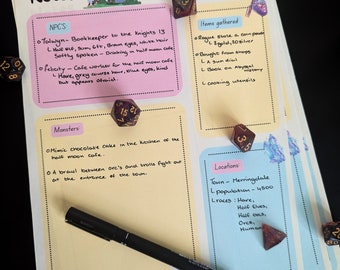 NPC's
Bookkeeper to the knights 13
Half elf, 5ft, Brown eyes, White hair
Softly spoken - Drinking in half moon cafe
Felicity - Cafe worker for the half moon cafe
Hare, grey course hair, blue eyes, kind
but appears afraid.
Items gathered
Rogue stole a
gold, 30 Silver
Bought from shops
A gun
Book on Abyssal
history
cooking utensils
Monsters
Mimic chocolate cake in the kitchen of the
half moon cafe.
A brawl between orc's and trolls fight out
at the entrance of the town.
Locations
Town - Merringdale
Population - 4800
races: Hare,
Half Elves,
Half orcs,
Orcs,
Human